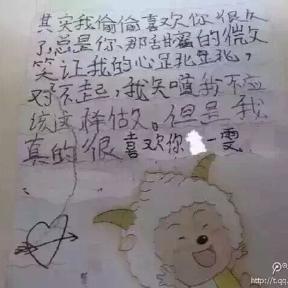 其实我偷偷喜欢你很久
了,总是你那甜蜜的微
笑让我的心
对不起,我知道我不应
该这样做。但是我
真的很喜欢你 一雯
http://t.qq.